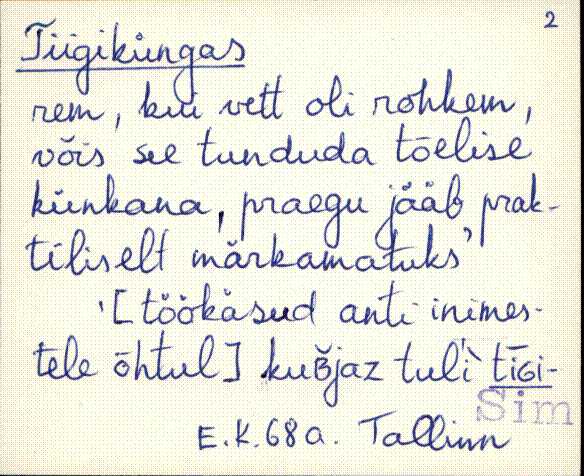 2
Tiigiküngas
rem, kui vett oli rohkem,
võis see tunduda tõelise
künkana, praegu jääb prak-
tiliselt märkamatuks'
'[töökäsud anti inimes-
tele õhtul] kuʙ̆jaz tul'ì tīɢi-
Sim
E.K.68a. Tallinn